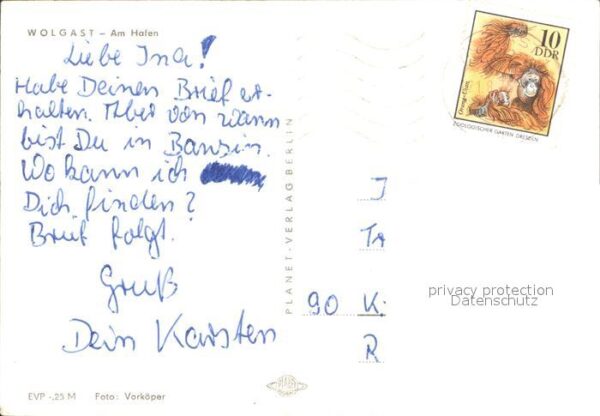 WOLGAST – Am Hafen
Liebe Ina!
Habe Deinen Brief er-
halten. Aber von wann
bist Du in Bansin.
Wo kann ich
Dich finden?
Brief folgt.
Gruß
Dein Karsten
EVP -,25 M Foto: Vorköper
PLANET-VERLAG BERLIN
10
DDR
Orang-Utan
ZOOLOGISCHER GARTEN DRESDEN
I
TA
90 K.
R
privacy protection
Datenschutz